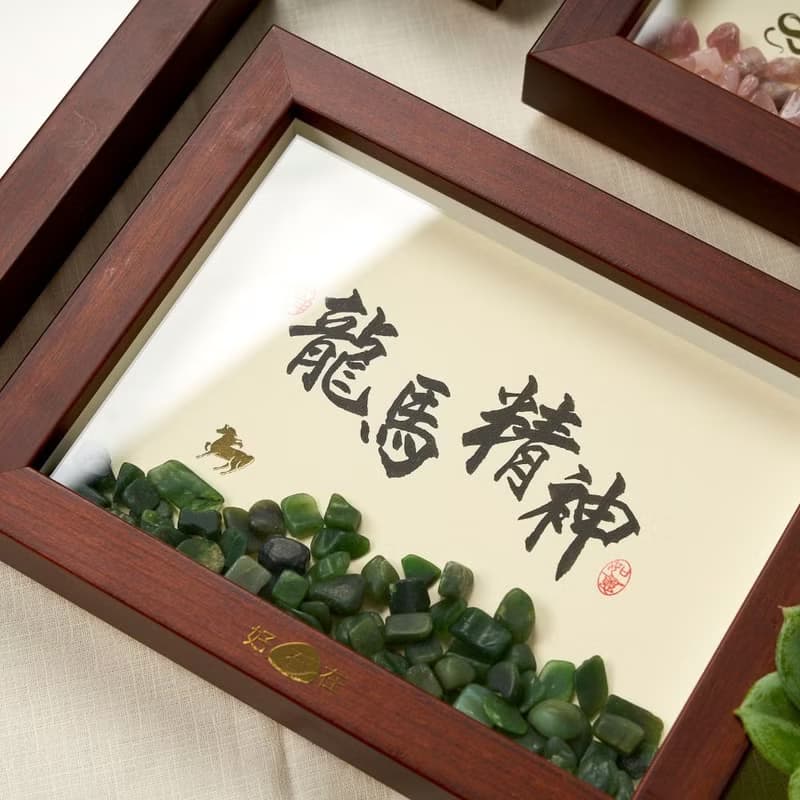 龍馬精神
好石在